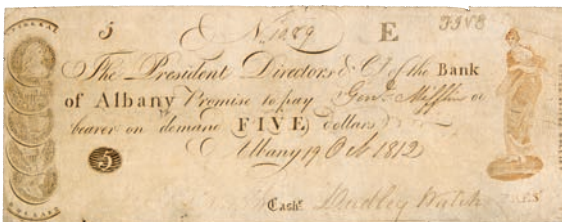 5 No. 1089 E FIVE
The President Directors & Co. of the Bank
of Albany Promise to pay Genl. Mifflin or
bearer on demand FIVE dollars
Albany 19 Oct 1812
5
Cashr. Dudley Walsh PRESt